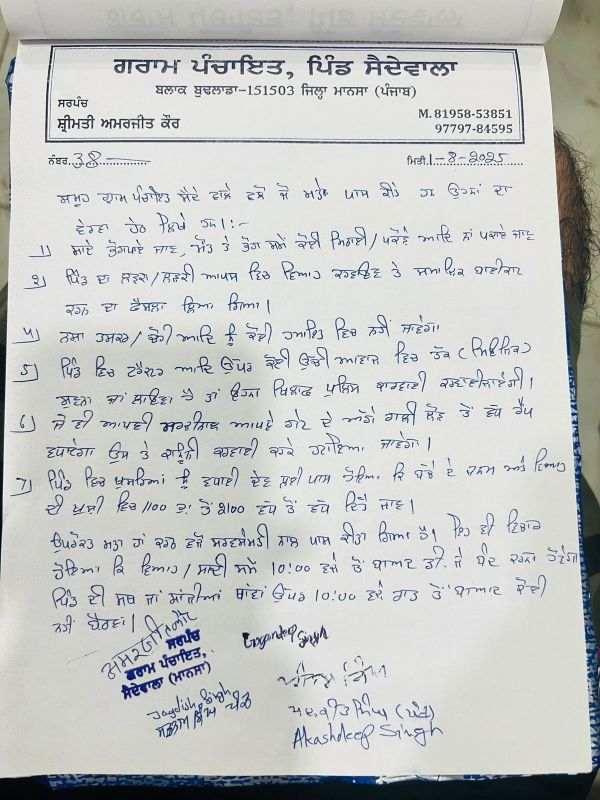 ਗਰਾਮ ਪੰਚਾਇਤ, ਪਿੰਡ ਸੈਦੇਵਾਲਾ
ਬਲਾਕ ਬੁਢਲਾਡਾ-151503 ਜਿਲ੍ਹਾ ਮਾਨਸਾ (ਪੰਜਾਬ)
ਸਰਪੰਚ
ਸ਼੍ਰੀਮਤੀ ਅਮਰਜੀਤ ਕੌਰ
M. 81958-53851
97797-84595
ਨੰਬਰ 38
ਮਿਤੀ 1-8-2025
ਸਮੂਹ ਗ੍ਰਾਮ ਪੰਚਾਇਤ ਸੈਦੇ ਵਾਲਾ ਵਲੋਂ ਜੋ ਮਤੇ ਪਾਸ ਕੀਤੇ ਹਨ ਉਹਨਾਂ ਦਾ
ਵੇਰਵਾ ਹੇਠ ਲਿਖੇ ਹਨ।:-
1) ਸਾਦੇ ਭੋਗ ਪਾਏ ਜਾਣ, ਮੌਤ ਤੇ ਭੋਗ ਸਮੇਂ ਕੋਈ ਮਿਠਾਈ/ਪਕੌੜੇ ਆਦਿ ਨਾਂ ਪਕਾਏ ਜਾਣ
੩) ਪਿੰਡ ਦਾ ਲੜਕਾ/ਲੜਕੀ ਆਪਸ ਵਿਚ ਵਿਆਹ ਕਰਵਾਉਣ ਤੇ ਸਮਾਜਿਕ ਬਾਈਕਾਟ
ਕਰਨ ਦਾ ਫੈਸਲਾ ਲਿਆ ਗਿਆ।
4) ਨਸ਼ਾ ਤਸਕਰ/ਚੋਰੀ ਆਦਿ ਨੂੰ ਕੋਈ ਹਮਾਇਤ ਵਿਚ ਨਹੀਂ ਜਾਵੇਗਾ
5) ਪਿੰਡ ਵਿਚ ਟਰੈਕਟਰ ਆਦਿ ਉਪਰ ਕੋਈ ਉਚੀ ਆਵਾਜ਼ ਵਿਚ ਡੈੱਕ (ਮਿਊਜ਼ਿਕ)
ਜਾਂ ਤਾਂ ਉਹਨਾਂ ਖਿਲਾਫ ਪੁਲਿਸ ਕਾਰਵਾਈ ਕਰਵਾਈ ਜਾਵੇਗੀ।
6) ਜੋ ਵੀ ਆਪਣੀ ਆਪਣੇ ਗੇਟ ਦੇ ਅੱਗੇ ਗਲੀ ਲੈਣ ਤੋਂ ਵੱਧ ਰੈਂਪ
ਵਧਾਏਗਾ ਉਸ ਤੇ ਕਾਨੂੰਨੀ ਕਾਰਵਾਈ ਕਰਕੇ ਹਟਾਇਆ ਜਾਵੇਗਾ।
7) ਪਿੰਡ ਵਿਚ ਖੁਸਰਿਆਂ ਨੂੰ ਵਧਾਈ ਦੇਣ ਲਈ ਪਾਸ ਹੋਇਆ ਕਿ ਬੱਚੇ ਦੇ ਜਨਮ ਅਤੇ ਵਿਆਹ
ਦੀ ਖੁਸ਼ੀ ਵਿਚ 1100 ਰੁ: ਤੋਂ 2100 ਰੁਪੈ ਤੋਂ ਵੱਧ ਦਿੱਤੇ ਜਾਣ।
ਉਪਰੋਕਤ ਮਤਾ ਹਾਂ ਕਰਨ ਵਜੋਂ ਸਰਵਸੰਮਤੀ ਨਾਲ ਪਾਸ ਕੀਤਾ ਗਿਆ ਹੈ। ਇਹ ਵੀ ਵਿਚਾਰ
ਹੋਇਆ ਕਿ ਵਿਆਹ/ਸ਼ਾਦੀ ਸਮੇਂ 10:00 ਵਜੇ ਤੋਂ ਬਾਅਦ ਡੀ.ਜੇ ਬੰਦ ਕਰਨਾ ਹੋਵੇਗਾ
ਪਿੰਡ ਦੀ ਸੱਥ ਜਾਂ ਸਾਂਝੀਆਂ ਥਾਂਵਾਂ ਉਪਰ 10:00 ਵਜੇ ਰਾਤ ਤੋਂ ਬਾਅਦ ਕੋਈ
ਨਹੀਂ ਬੈਠੇਗਾ।
ਅਮਰਜੀਤ ਕੌਰ
ਸਰਪੰਚ
ਗਰਾਮ ਪੰਚਾਇਤ
ਸੈਦੇਵਾਲਾ (ਮਾਨਸਾ)
Gagandeep Singh
Jagdish Singh
(ਪੰਚ)
Akashdeep Singh